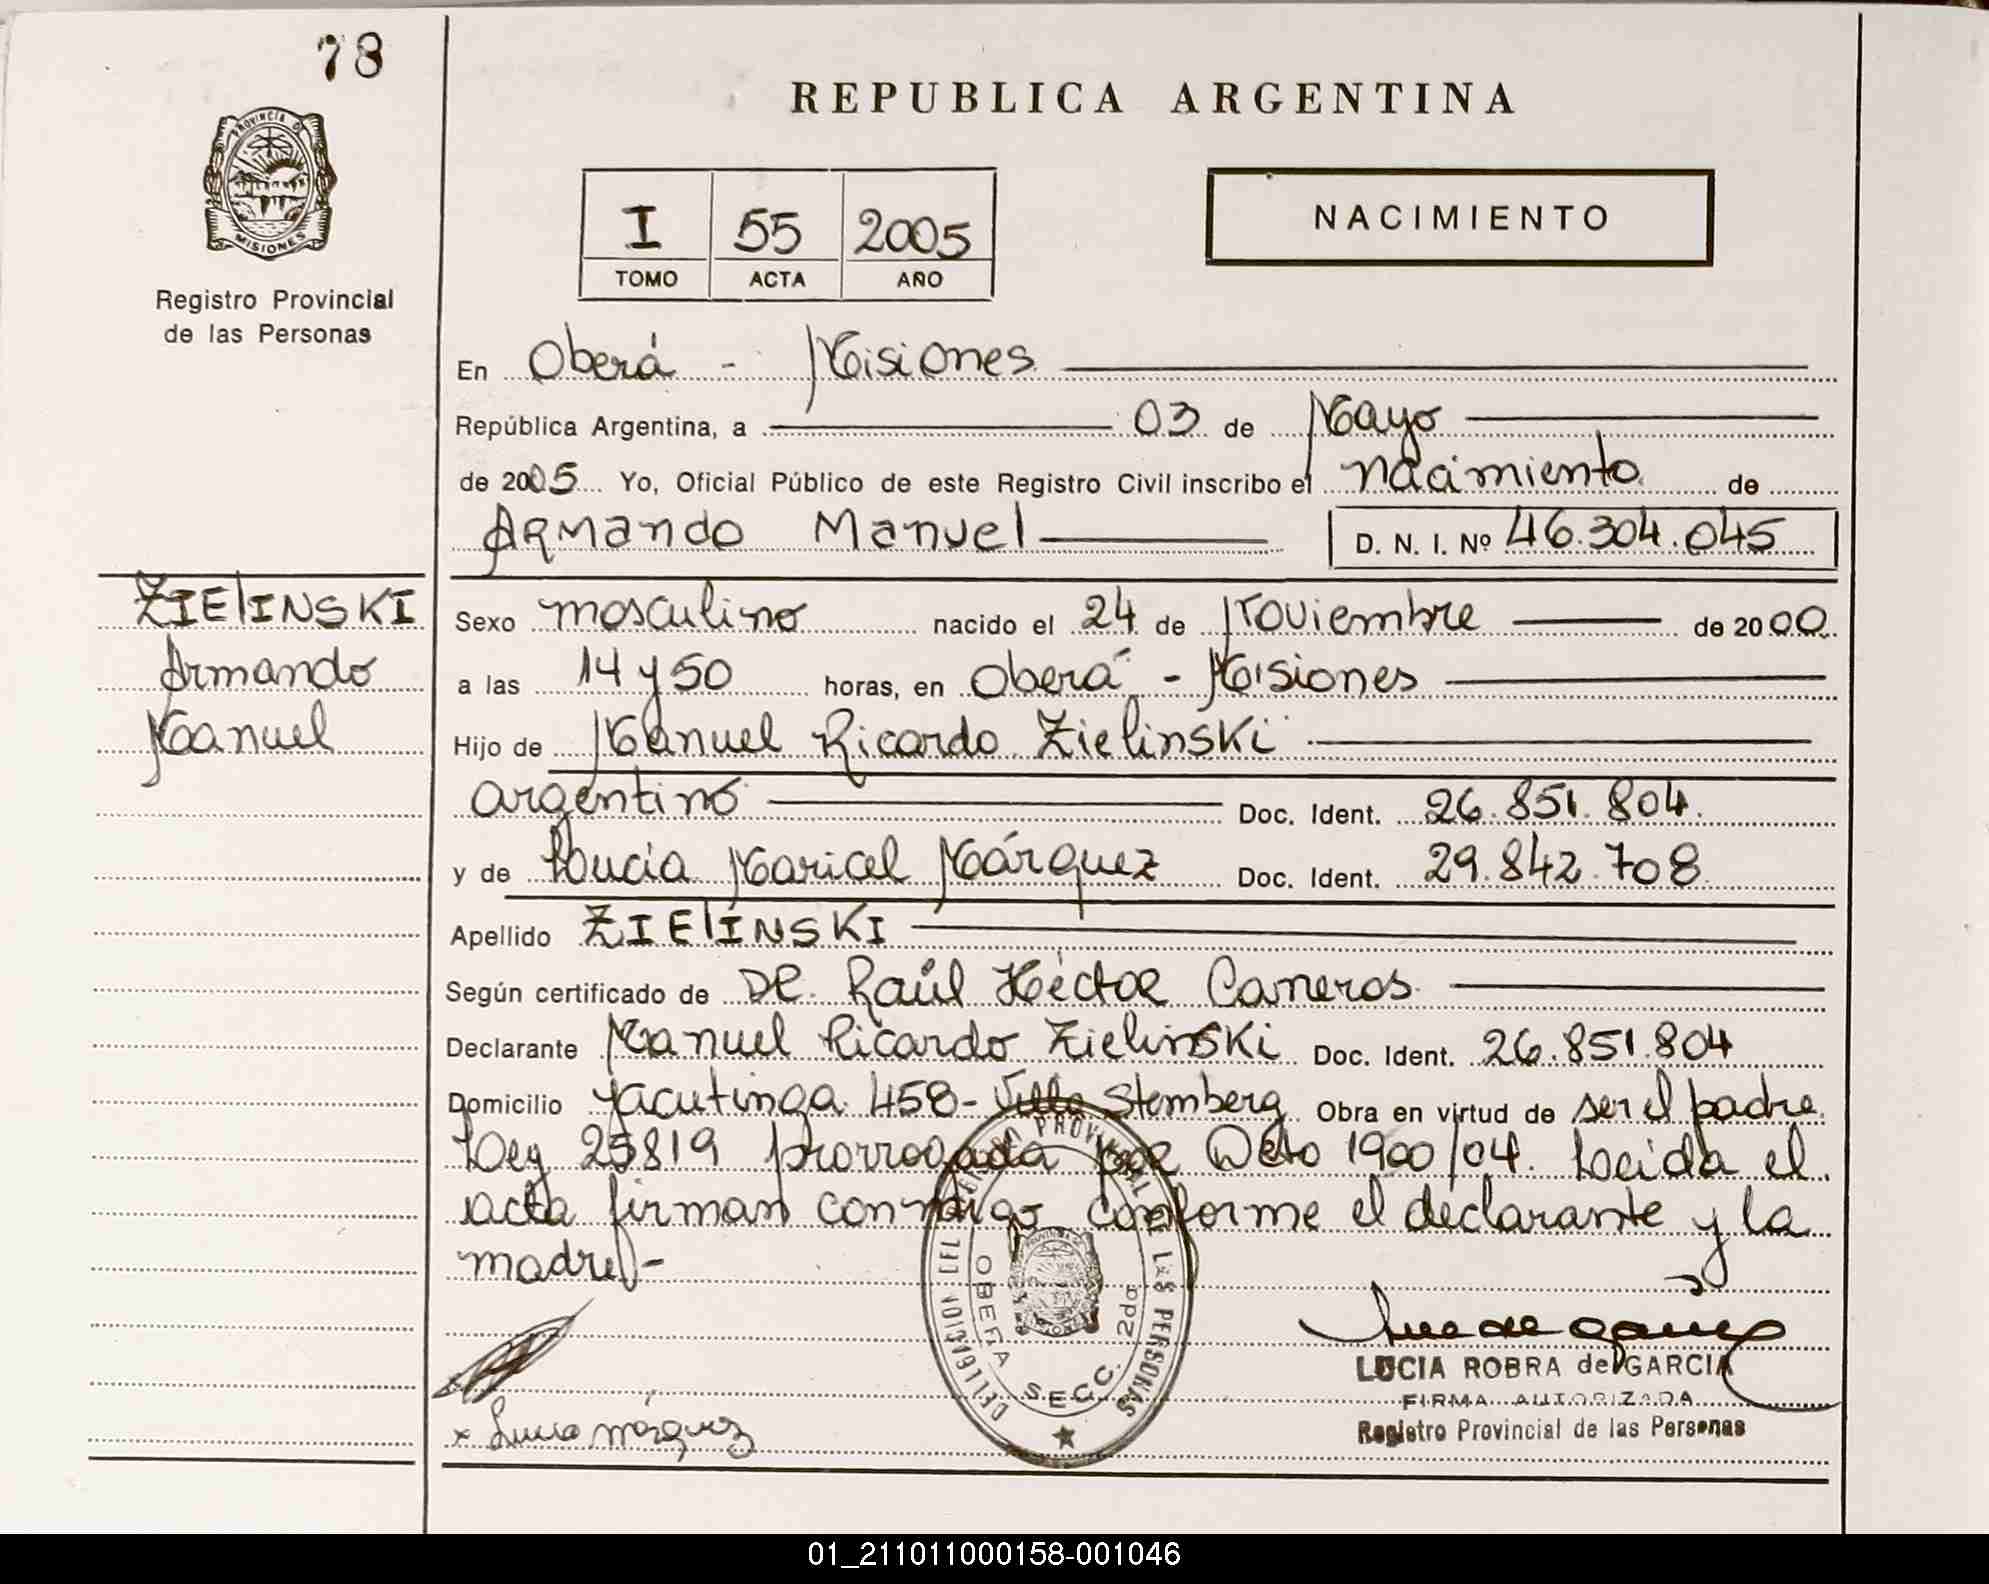 78
REPUBLICA ARGENTINA
PROVINCIA DE MISIONES
Registro Provincial
de las Personas
I 55 2005
TOMO ACTA AÑO
NACIMIENTO
En Oberá - Misiones
República Argentina, a 03 de Mayo
de 2005 Yo, Oficial Público de este Registro Civil inscribo el nacimiento de
Armando Manuel D. N. I. Nº 46.304.045
ZIELINSKI
Armando
Manuel
Sexo masculino nacido el 24 de Noviembre de 2000
a las 14 y 50 horas, en Oberá - Misiones
Hijo de Manuel Ricardo Zielinski
argentino Doc. Ident. 26.851.804.
y de Lucia Maricel Márquez Doc. Ident. 29.842.708
Apellido ZIELINSKI
Según certificado de DR. Raúl Héctor Carneros
Declarante Manuel Ricardo Zielinski Doc. Ident. 26.851.804
Domicilio Yacutinga 458 - Villa Stemberg Obra en virtud de ser el padre
Ley 25819 prorrogada por Dcto 1900/04. Leida el
acta firman conmigo conforme el declarante y la
madre.-
DELEGACION DEL REGISTRO PROVINCIAL DE LAS PERSONAS
OBERA SECC. 2da
LUCIA ROBRA de GARCIA
FIRMA AUTORIZADA
Registro Provincial de las Personas
x Lucia Márquez
01_211011000158-001046